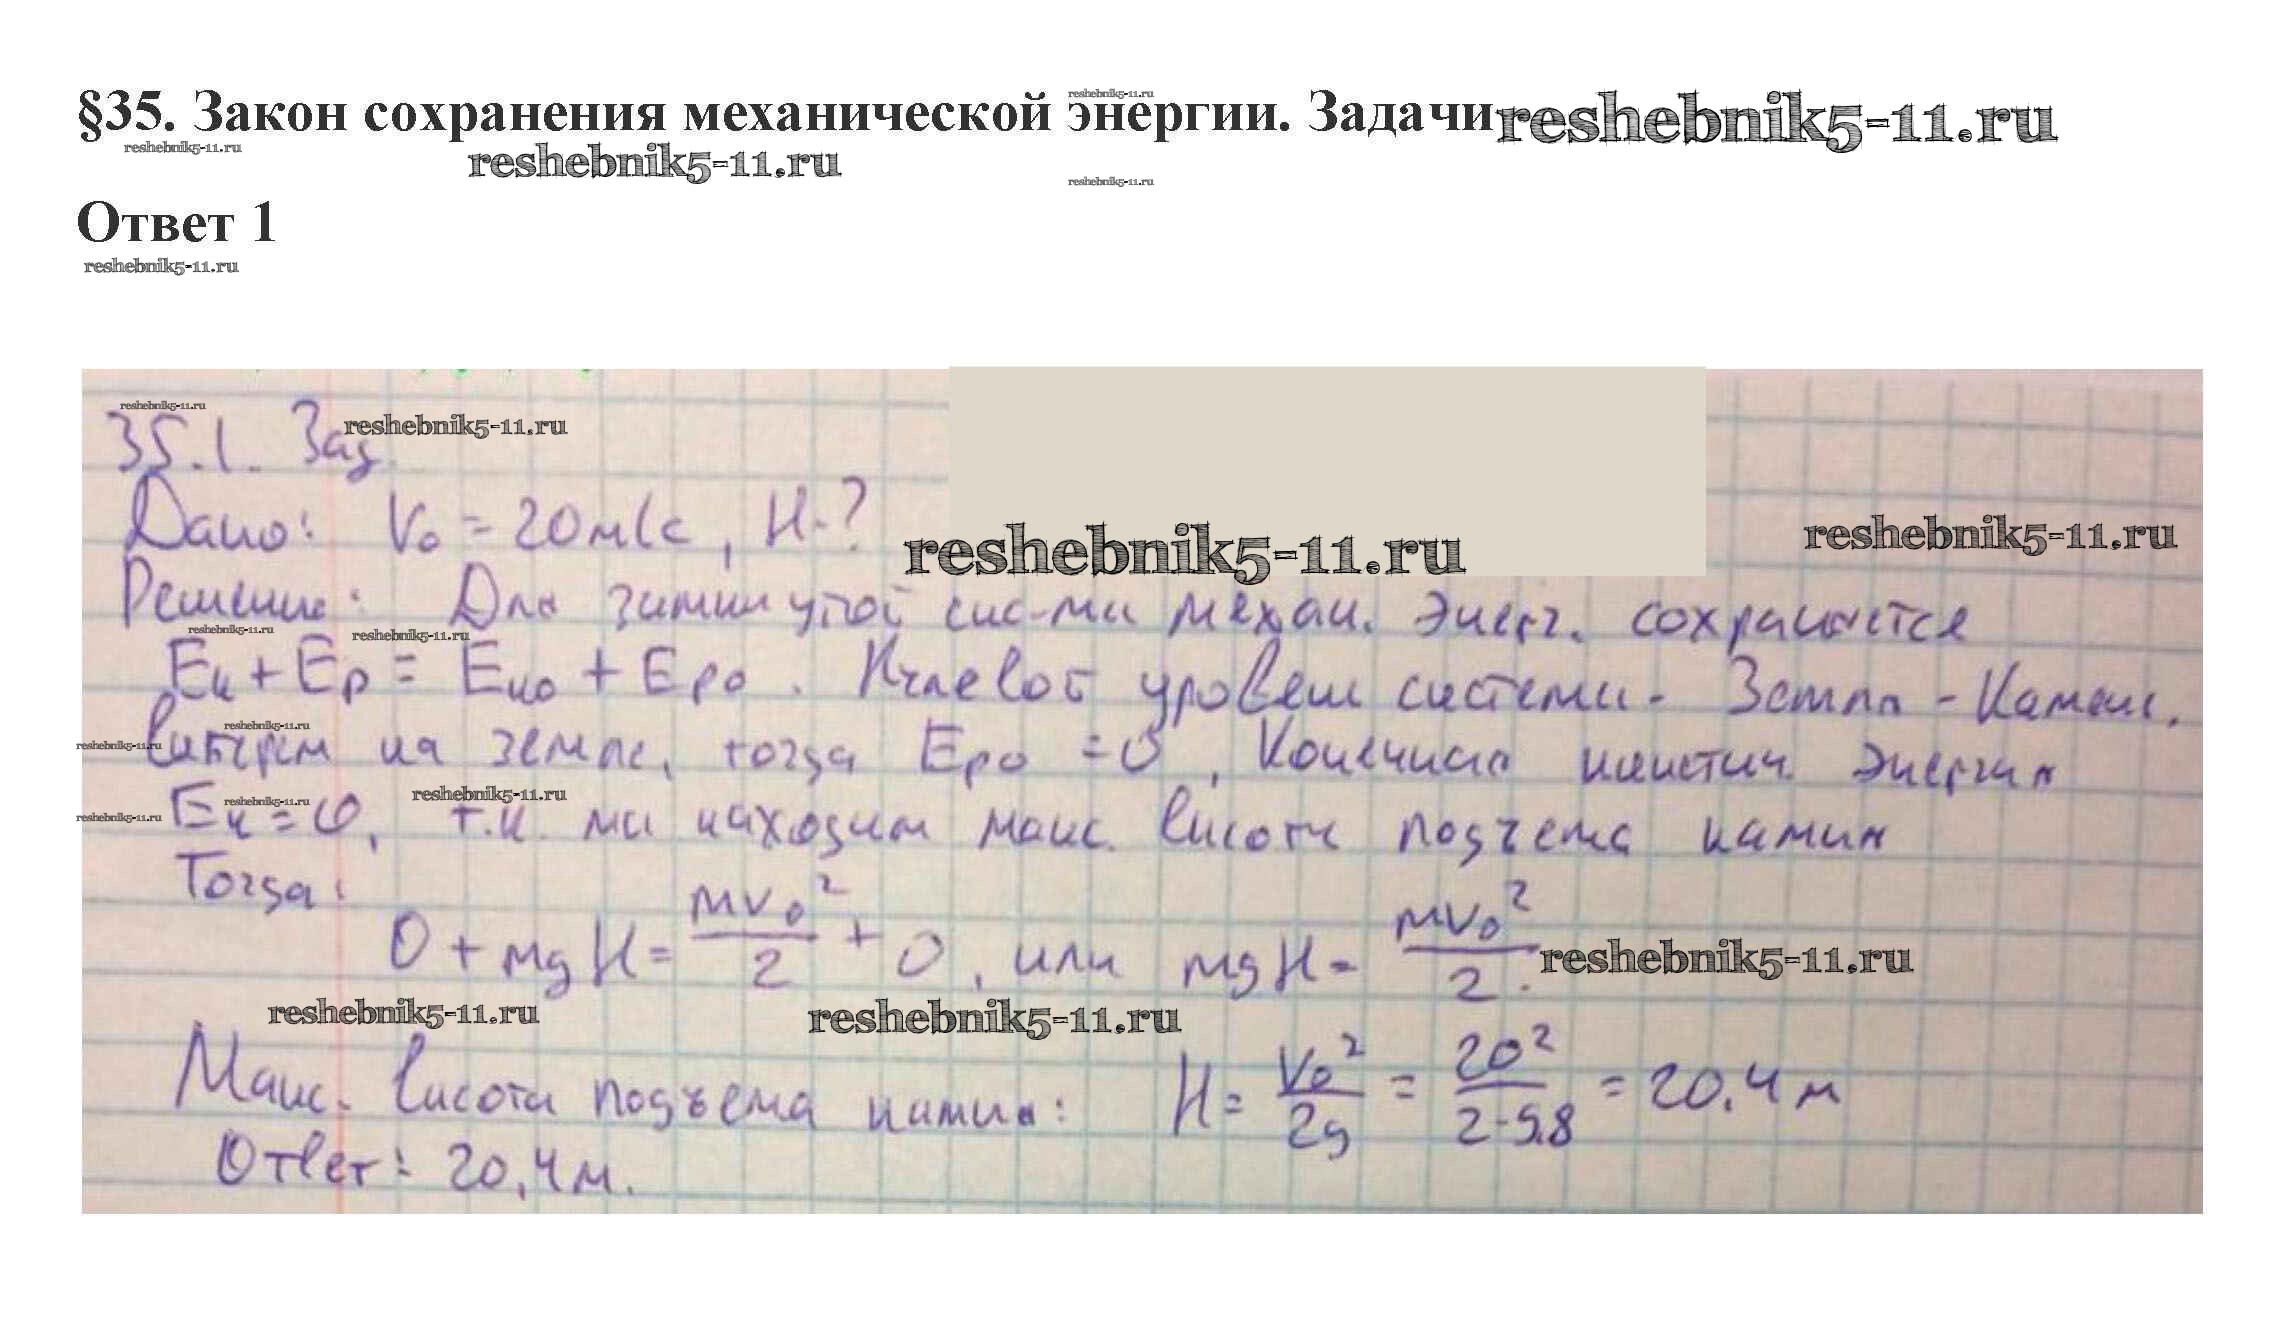 §35. Закон сохранения механической энергии. Задачи reshebnik5-11.ru
reshebnik5-11.ru
reshebnik5-11.ru
reshebnik5-11.ru
reshebnik5-11.ru
Ответ 1
reshebnik5-11.ru
reshebnik5-11.ru
35.1. Зад. reshebnik5-11.ru
Дано: V₀ = 20 м/с, H-?
reshebnik5-11.ru
reshebnik5-11.ru
Решение: Для замкнутой сис-мы механ. энерг. сохраняется
reshebnik5-11.ru
reshebnik5-11.ru
Eк + Eр = Eко + Eро. Нулевой уровень системы - Земля - Камень.
reshebnik5-11.ru
reshebnik5-11.ru
выберем на земле, тогда Eро = 0, Конечная кинетич. энергия
reshebnik5-11.ru
reshebnik5-11.ru
reshebnik5-11.ru
Eк = 0, т.к. мы находим макс. высоту подъема камня
Тогда:
0 + mgH = mv₀²/2 + 0, или mgH = mv₀²/2.
reshebnik5-11.ru
reshebnik5-11.ru
reshebnik5-11.ru
Макс. высота подъема камня: H = V₀²/2g = 20²/2·9.8 = 20,4 м
Ответ: 20,4 м.